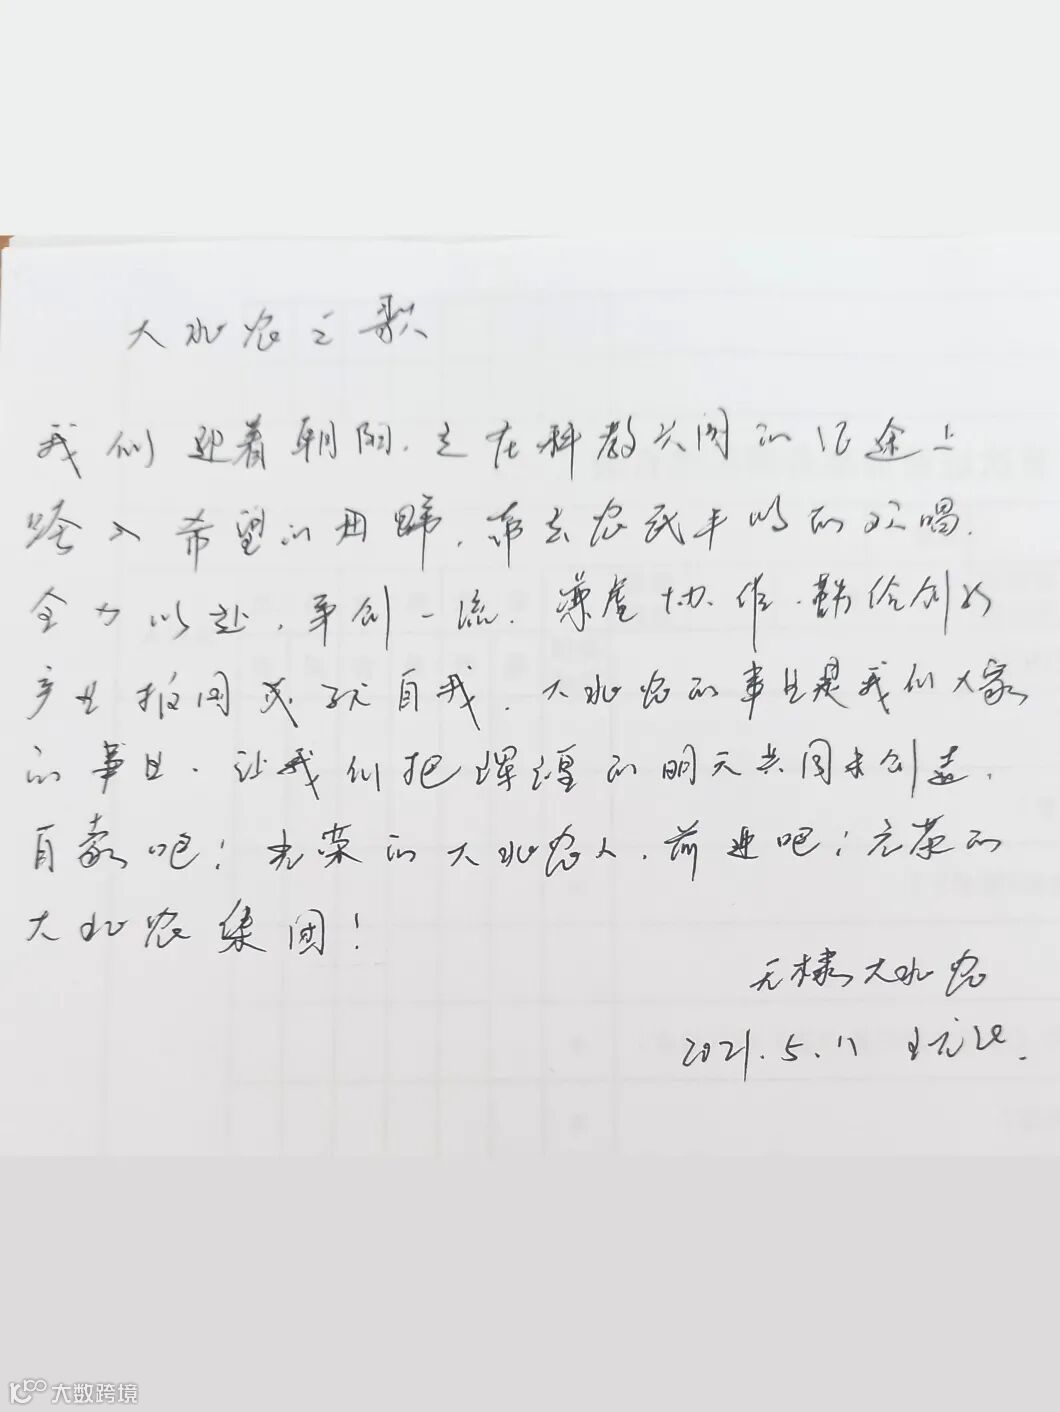 大北农之歌
我们迎着朝阳,走在科教兴国的征途上
跨入希望的田畴,带去农民丰收的欢唱.
全力以赴,争创一流.谦虚协作.勤俭创业
产业报国成就自我.大北农的事业是我们大家
的事业.让我们把辉煌的明天共同来创造.
自豪吧!光荣的大北农人.前进吧!光荣的
大北农集团!
无棣大北农
2021.5.11 王
大数跨境